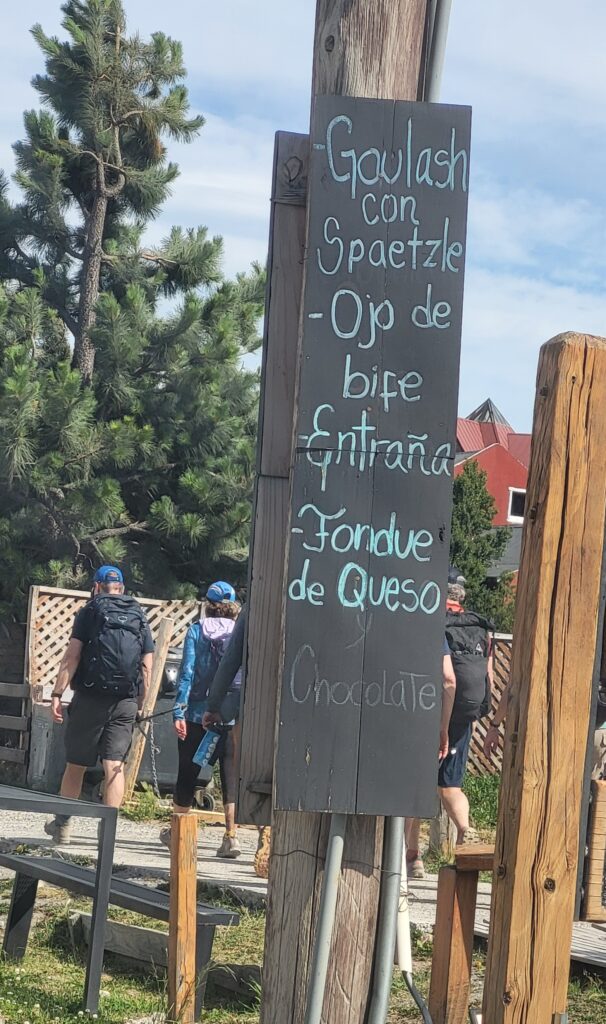 -Goulash
con
Spaetzle
-Ojo de
bife
-Entraña
-Fondue
de Queso
y
Chocolate